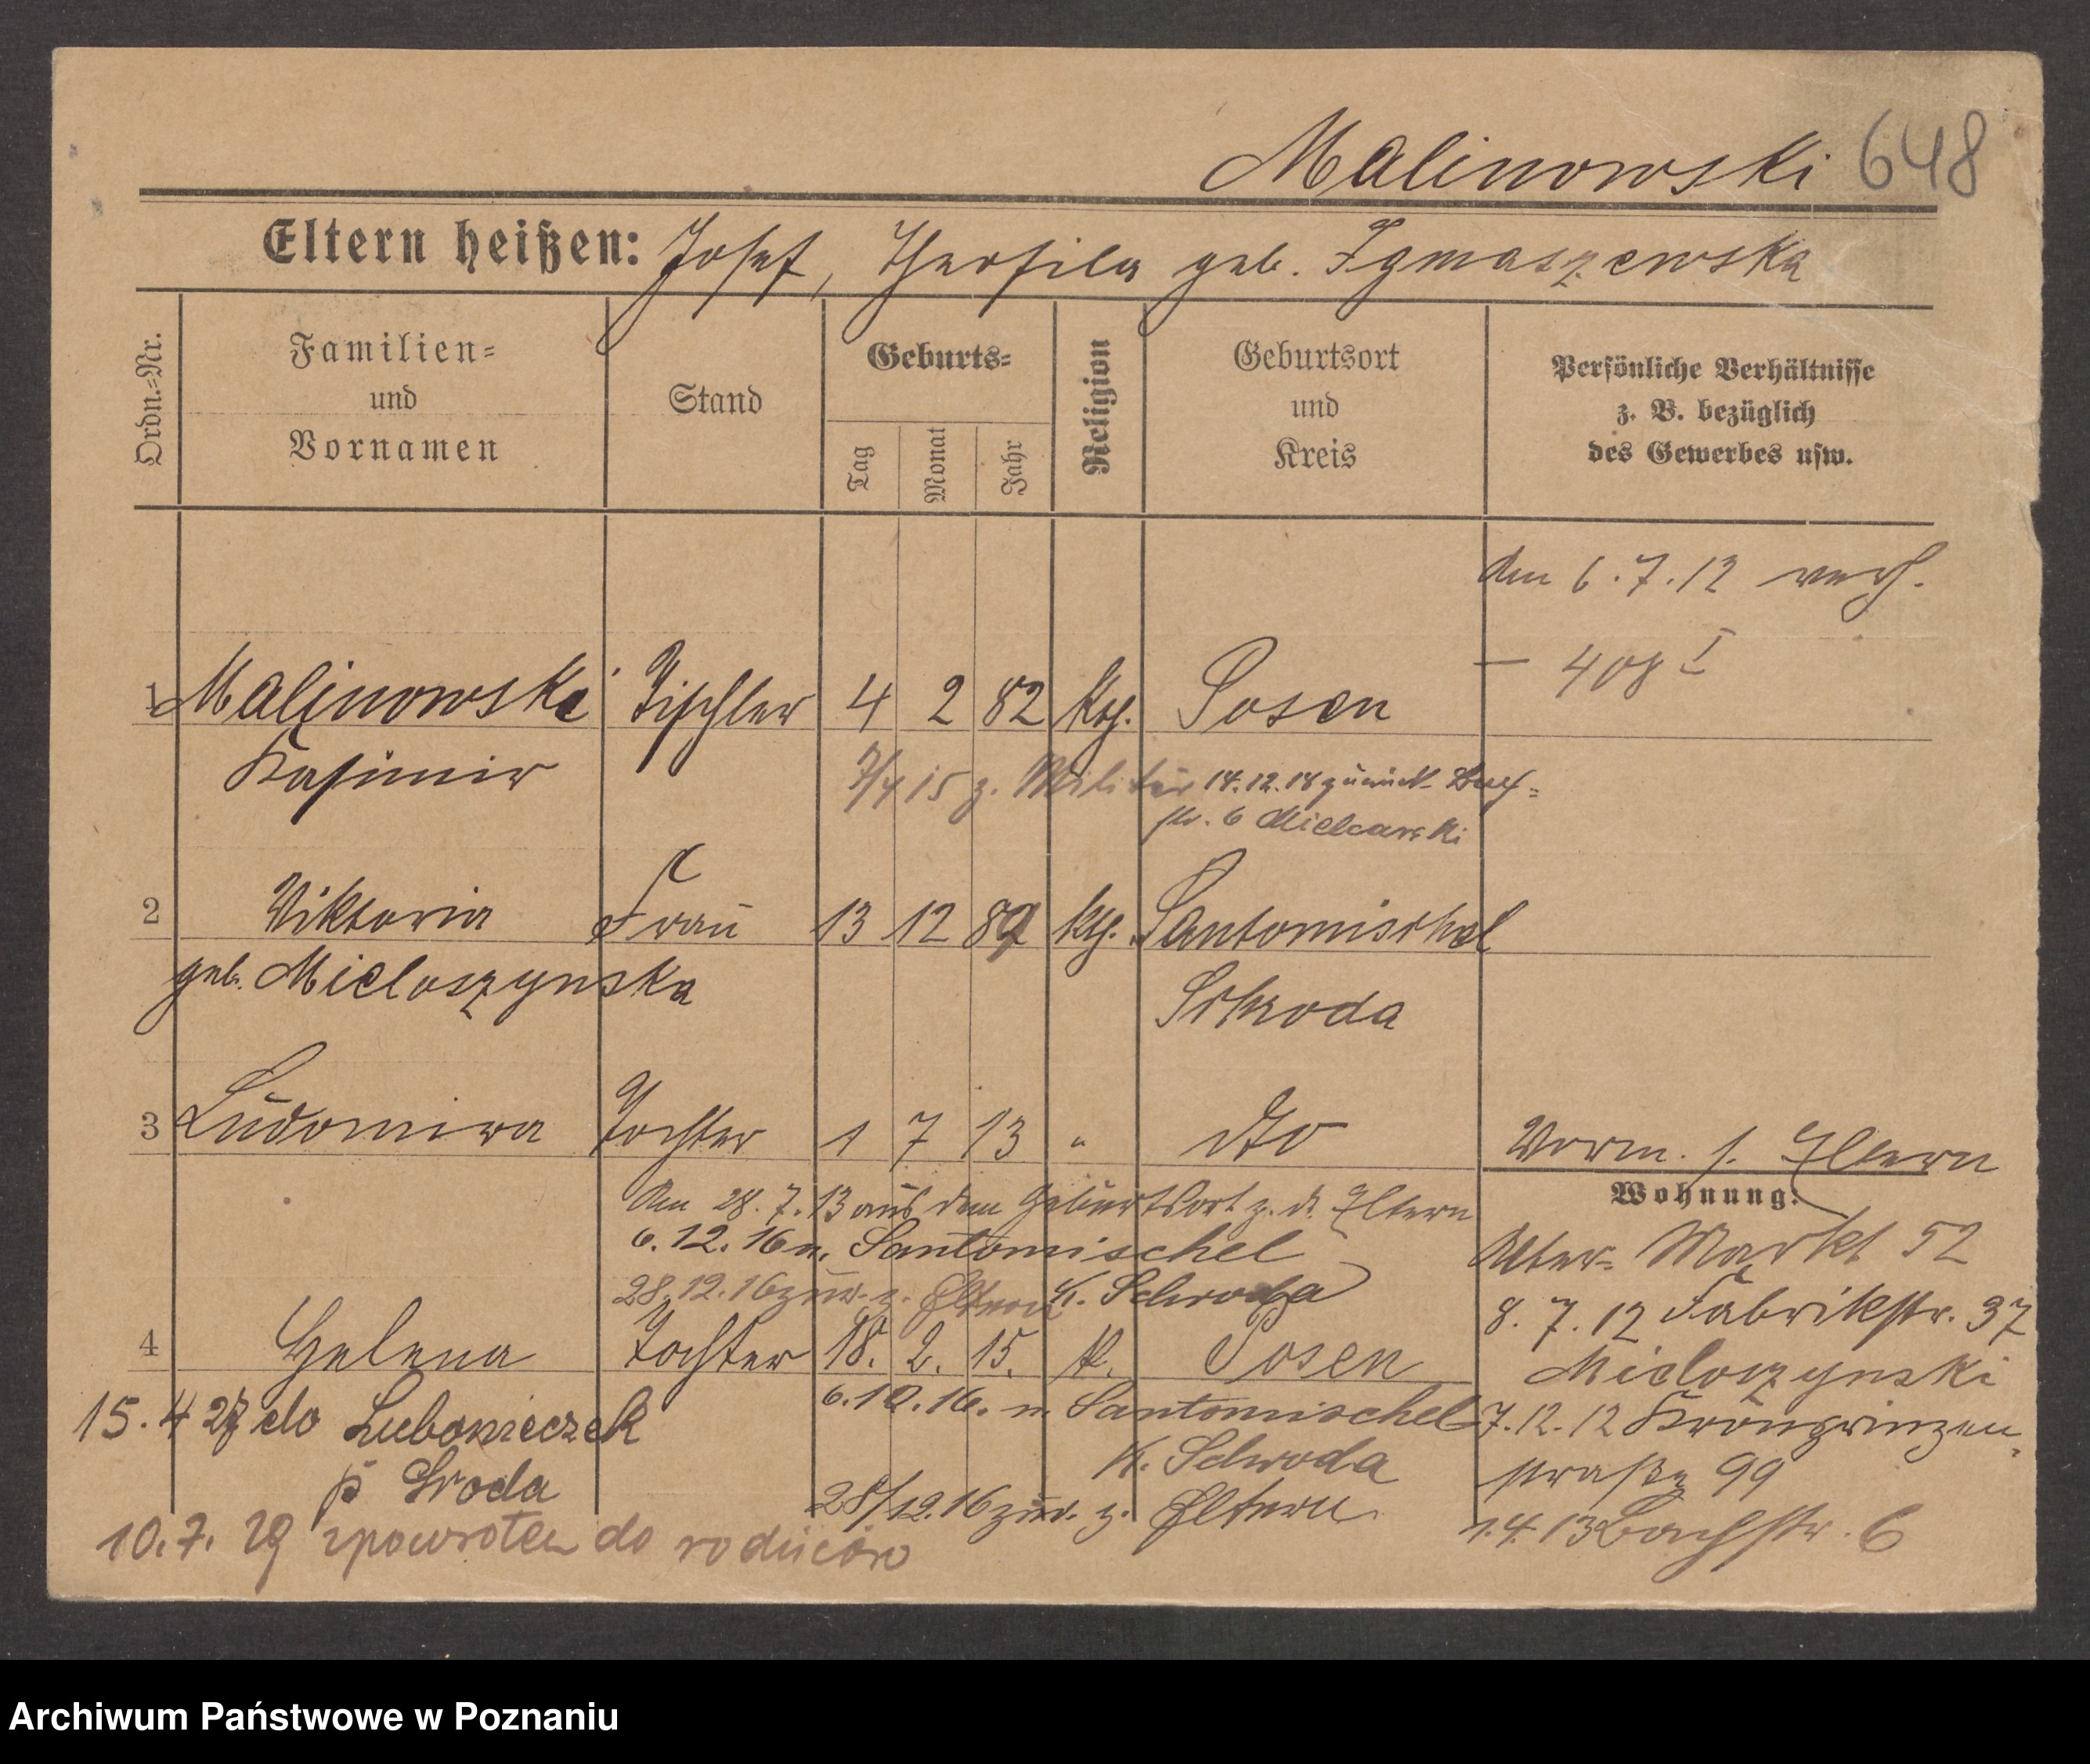 Malinowski 648
Eltern heißen: Josef, Theofila geb. Igmaszewska
Ordn.-Nr.
Familien-
und
Vornamen
Stand
Geburts-
Tag
Monat
Jahr
Religion
Geburtsort
und
Kreis
Persönliche Verhältnisse
z. B. bezüglich
des Gewerbes usw.
den 6.7.12 verh.
— 408 I
1 Malinowski Tischler 4 2 82 kth. Posen
Kasimir
7/4 15 z. Militär 14.12.18 zurück Bach-
str. 6 Mielcarski
2 Viktoria Frau 13 12 89 kth. Santomischel
geb. Mieloszynska
Schroda
3 Ludomira Tochter 1 7 13 " dto Vorm. s. Eltern
Am 28.7.13 aus dem Geburtsort z. d. Eltern
6.12.16 n. Santomischel
28.12.16 zur. z. Eltern K. Schroda
4 Helena Tochter 18. 2. 15. k. Posen
6.10.16. n. Santomischel
K. Schroda
28/12.16 zur. z. Eltern
Wohnung:
Alter-Markt 52
8.7.12 Fabrikstr. 37
Mieloszynski
7.12.12 Kronprinzen-
straße 99
1.4.13 Bachstr. 6
15.4 27 do Lubonieczek
p Sroda
10.7.29 zpowrotem do rodziców
Archiwum Państwowe w Poznaniu